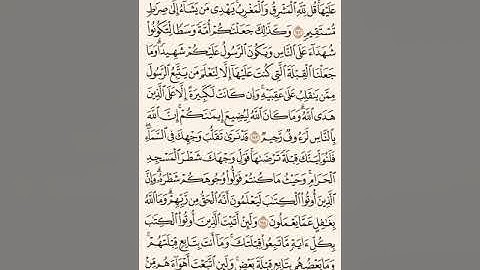 عَلَيْهَا قُل لِّلَّهِ ٱلْمَشْرِقُ وَٱلْمَغْرِبُ يَهْدِى مَن يَشَآءُ إِلَىٰ صِرَٰطٍ
مُّسْتَقِيمٍ ١٤٢ وَكَذَٰلِكَ جَعَلْنَٰكُمْ أُمَّةً وَسَطًا لِّتَكُونُوا۟
شُهَدَآءَ عَلَى ٱلنَّاسِ وَيَكُونَ ٱلرَّسُولُ عَلَيْكُمْ شَهِيدًا وَمَا
جَعَلْنَا ٱلْقِبْلَةَ ٱلَّتِى كُنتَ عَلَيْهَآ إِلَّا لِنَعْلَمَ مَن يَتَّبِعُ ٱلرَّسُولَ
مِمَّن يَنقَلِبُ عَلَىٰ عَقِبَيْهِ وَإِن كَانَتْ لَكَبِيرَةً إِلَّا عَلَى ٱلَّذِينَ
هَدَى ٱللَّهُ وَمَا كَانَ ٱللَّهُ لِيُضِيعَ إِيمَٰنَكُمْ إِنَّ ٱللَّهَ
بِٱلنَّاسِ لَرَءُوفٌ رَّحِيمٌ ١٤٣ قَدْ نَرَىٰ تَقَلُّبَ وَجْهِكَ فِى ٱلسَّمَآءِ
فَلَنُوَلِّيَنَّكَ قِبْلَةً تَرْضَىٰهَا فَوَلِّ وَجْهَكَ شَطْرَ ٱلْمَسْجِدِ
ٱلْحَرَامِ وَحَيْثُ مَا كُنتُمْ فَوَلُّوا۟ وُجُوهَكُمْ شَطْرَهُۥ وَإِنَّ
ٱلَّذِينَ أُوتُوا۟ ٱلْكِتَٰبَ لَيَعْلَمُونَ أَنَّهُ ٱلْحَقُّ مِن رَّبِّهِمْ وَمَا ٱللَّهُ
بِغَٰفِلٍ عَمَّا يَعْمَلُونَ ١٤٤ وَلَئِنْ أَتَيْتَ ٱلَّذِينَ أُوتُوا۟ ٱلْكِتَٰبَ
بِكُلِّ ءَايَةٍ مَّا تَبِعُوا۟ قِبْلَتَكَ وَمَآ أَنتَ بِتَابِعٍ قِبْلَتَهُمْ
وَمَا بَعْضُهُم بِتَابِعٍ قِبْلَةَ بَعْضٍ وَلَئِنِ ٱتَّبَعْتَ أَهْوَآءَهُم مِّنۢ